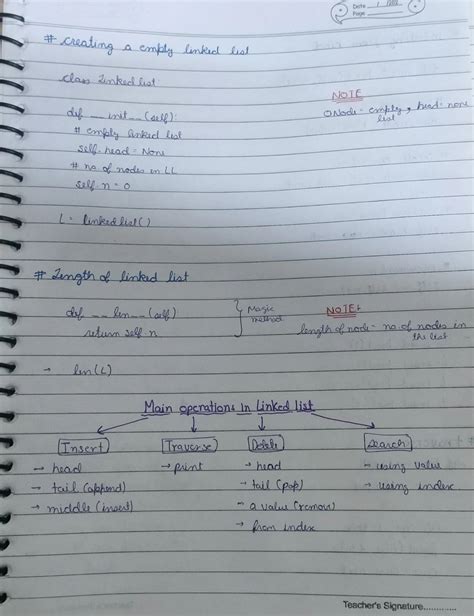 Date 1 / 202
Page
# creating a empty linked list
class Linked list
NOTE
0 Node - empty list, head = none
def __init__(self):
# empty linked list
self.head = None
# no. of nodes in LL
self.n = 0
L = linkedlist()
# Length of linked list
def __len__(self)
return self.n
Magic method
NOTE:
length of node - no. of nodes in the list
→ len(L)
Main operations in Linked list
Insert
→ head
→ tail (append)
→ middle (insert)
Traverse
→ print
Delete
→ head
→ tail (pop)
→ a value (remove)
→ from index
Search
→ using value
→ using index
Teacher's Signature............